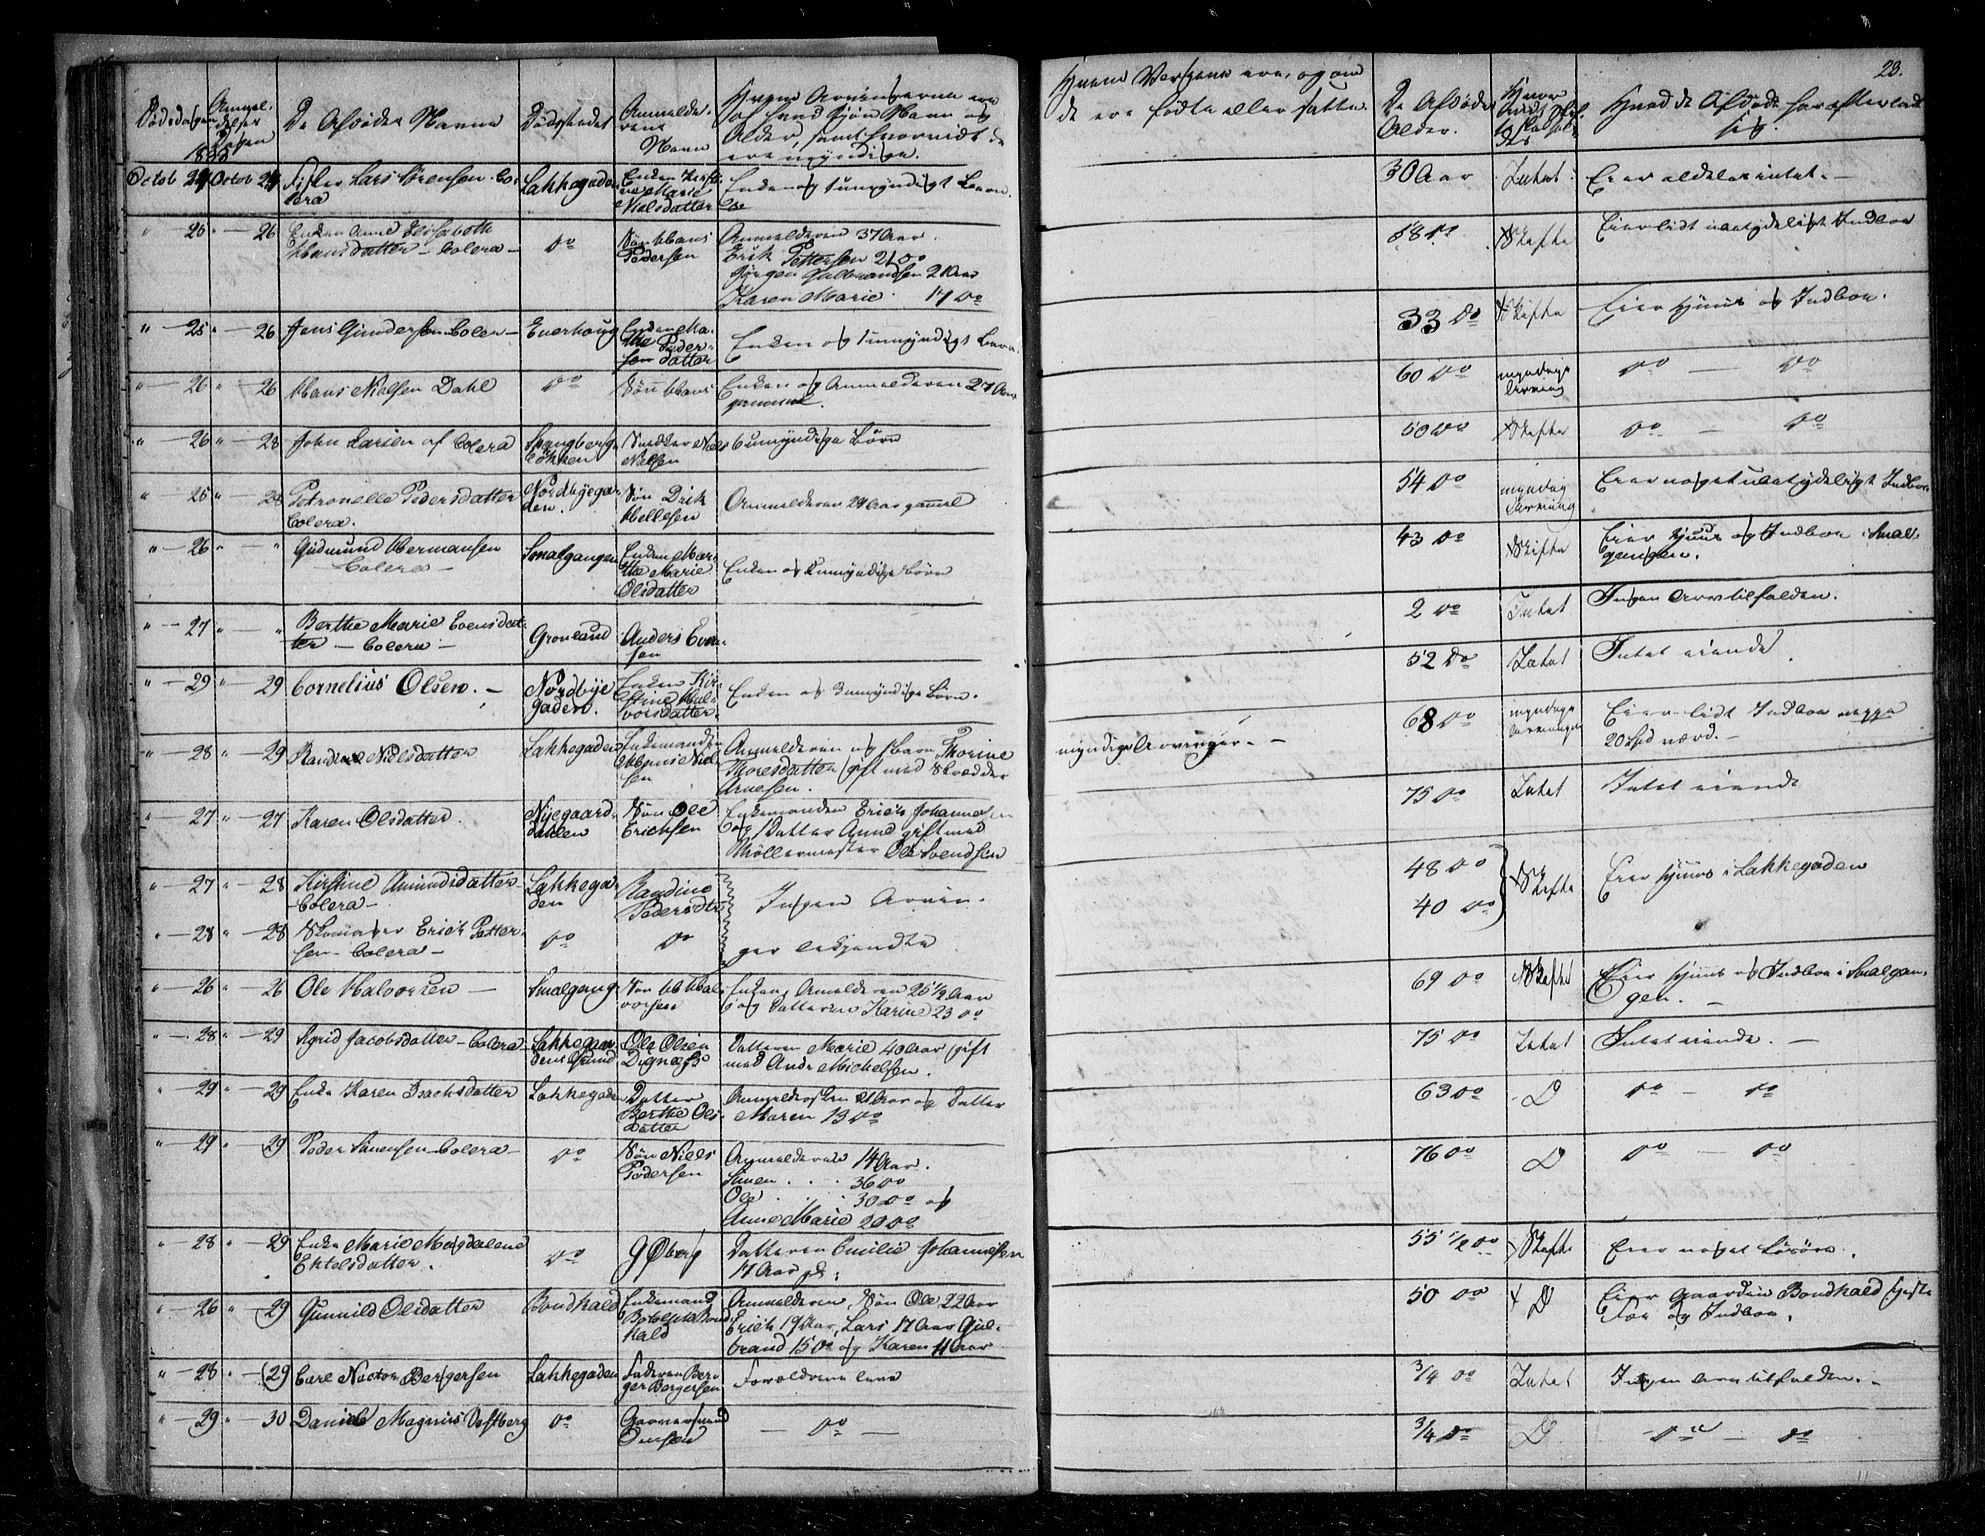 Dødsdagen 1833
Anmeldelses Dagen
De Afdødes Navne
Dødsstedet
Anmelderens Navn
Hvem Arvingerne ere af hvad Kjøn Navn og Alder, samt hvorvidt de ere myndige.
Hvem Vergerne ere, og om de ere fødte eller satte.
De Afdødes Alder.
Hvad de Afdøde har efterladt sig.
23.
Octob 24 Octob 24 Fisker Lars Sørensen Colera Lakkegaden Enken Kirstine Marie Nielsdatter Enken og umyndigt Barn 30 Aar Intet Eier aldeles intet. —
" — 25 " — 26 Enken Anne Elisabeth Hansdatter — Colera — Do Søn Hans Pedersen Anmelderen 37 Aar.
Erik Pettersen 21 Do
Jørgen Gulbrandsen 21 Aar
Karen Marie 17 Do 58 Do Skifte Eier lidt ubetydeligt Indboe
" — 25 " — 26 Jens Gundersen Colera — Enerhoug Enken Marthe Pedersdatter Enken og umyndigt Barn 33 Do Skifte Eier Huus og Indboe.
" — 26 " — 26 Hans Nielsen Dahl Do Søn Hans Enken og Anmelderen 27 Aar gammel. 60 Do myndige Arving Do — Do
" — 26 " — 28 John Larsen af Colera Spangberg Løkken Snedker Niels Nielsen 6 umyndige Børn 50 Do Skifte Do — Do
" — 25 " — 28 Petronelle Pedersdatter Colera. Nordbyegaden. Søn Dirik Hellesen Anmelderen 24 Aar gammel 54 Do myndig Arving Eier noget ubetydeligt Indboe
" — 26 " — " Gudmund Hermansen Colera — Smalgangen Enken Marthe Marie Olsdatter Enken og umyndige Børn 43 Do Skifte Eier Huus og Indboe i Smalgangen.
" — 27 " — " Berthe Marie Evensdatter — Colera — Grønland Anders Evensen 2 Do Intet Ingen Arv tilfalden.
" — 29 " — 29 Cornelius Olsen. — Nordbyegaden. Enken Kirstine Halvorsdatter. Enken og 3 umyndige Børn. 52 Do Intet Intet eiende
" — 28 " — 29 Randine Nielsdatter Lakkegaden Enkemanden Hans Nielsen Anmelderen og Barn Thorine Thoresdatter gift med Skrædder Arnesen. myndige Arvinger. — 68 Do myndige Arvinger Eier lidt Indboe neppe 20 Spd værd. —
" — 27 " — 27 Karen Olsdatter. Nyegaardsdahlen Søn Ole Erichsen Enkemanden Erich Johannesen og Datter Anne gift med Møllermester Ole Svendsen 75 Do Intet Intet eiende
" — 27 " — 28 Kirstine Amundsdatter Colera — Lakkegaden Randine Pedersdtr Ingen Arvin- 48 Do Skifte Eier Huus i Lakkegaden
" — 28 " — 28 Skomager Erich Pettersen — Colera — Do Do ger bekjendte 40 Do
" — 26 " — 26 Ole Halvorsen — Smalgang Søn Halvorsen Enken, Anmelderen 26 1/2 Aar og Datteren Karine 23 Do 69 Do Skiftet Eier Huus og Indboe i Smalgangen. —
" — 28 " — 29 Sigrid Jacobsdatter — Colera — Lakkegadens Grund Ole Olsen Datteren Marie 40 Aar gift med Anders Michelsen. 75 Do Intet Intet eiende. —
" — 29 " — 29 Enke Karen Isachsdatter Lakkegaden Datter Berthe Olsdatter Anmeldersken 21 Aar og Datter Maren 13 Do 63 Do D Do — Do
" — 29 " — 29 Peder Simensen Colera — Do Søn Niels Pedersen Anmelderen 14 Aar.
Simen . . . 36 Do
Ole . . 30 Do og
Anne Marie 20 Do 76 Do D Do — Do
" — 28 " — 29 Enke Marie Magdalene Ektelsdatter. Do G Øberg Datteren Emilie Johannesen 17 Aar gl: 55 1/2 Do Skifte Eier noget Løsøre.
" — 26 " — 29 Gunnild Olsdatter Bondkald Enkemand Bondkald Anmelderen, Søn Ole 22 Aar Erich 19 Aar, Lars 17 Aar Gulbrand 15 Do og Karen 11 Aar 50 Do D Eier Gaarden Bondkald Heste Køer og Indboe.
" — 28 " — 29 Carl Nector Bergersen Lakkegaden Faderen Berger Bergersen Forældrene leve 3/4 Do Intet Ingen Arv tilfalden. —
" — 29 " — 30 Daniel Magnus Vestberg Do Garversvend — Do — 3/4 Do D Do — Do